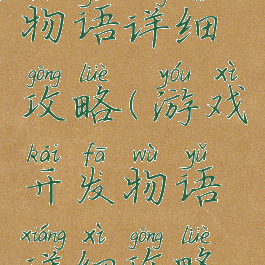 物语详细
gōng lüè yóu xì
攻略(游戏
kāi fā wù yǔ
开发物语
xiáng xì gōng lüè
详细攻略